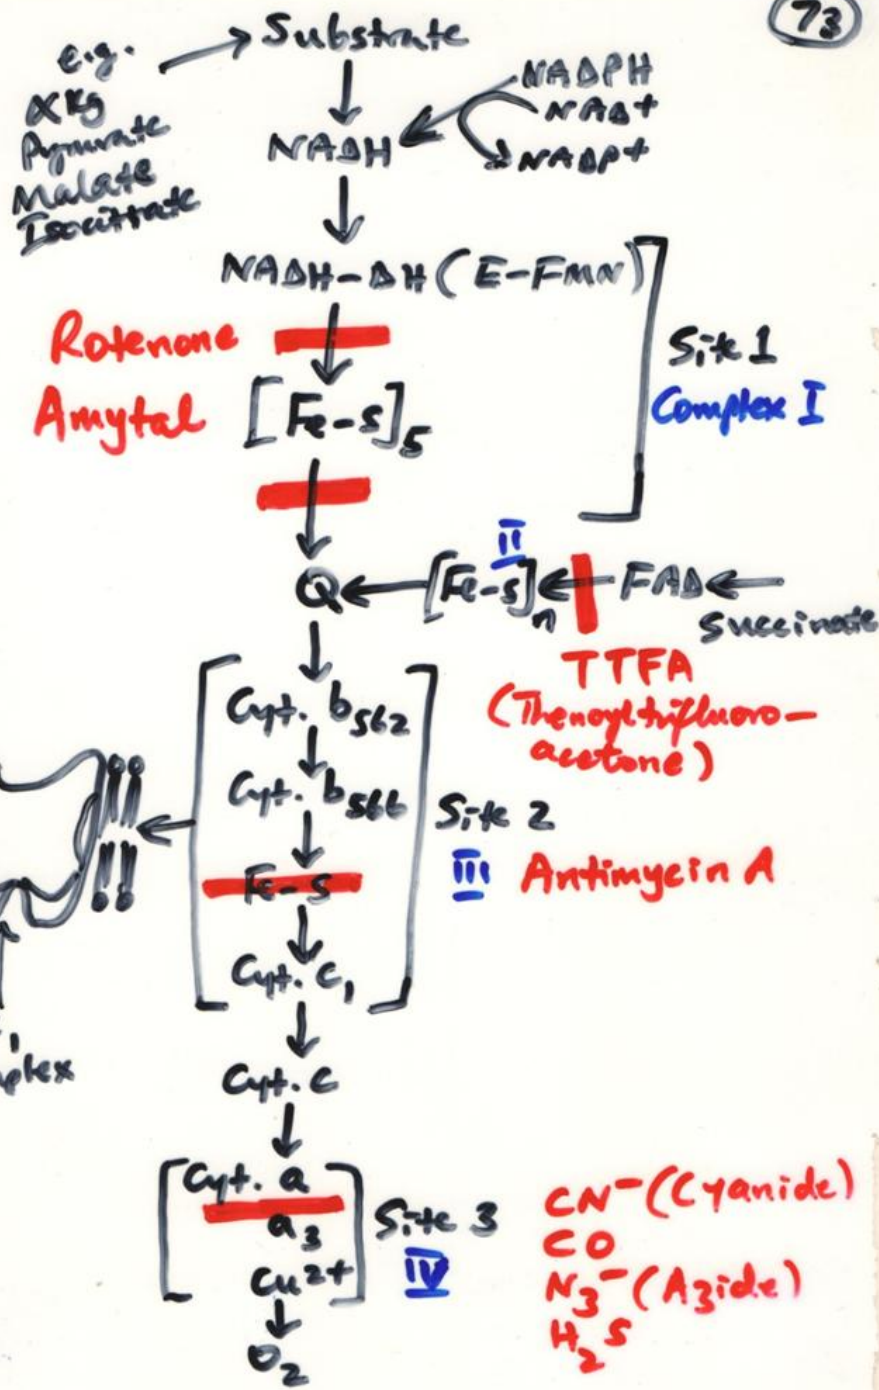 73
e.g.
αKg
Pyruvate
Malate
Isocitrate
Substrate
NADPH
NAD+
NADP+
NADH
NADH-DH (E-FMN)
Rotenone
Amytal
[Fe-S]5
Site 1
Complex I
Q
[Fe-S]n
II
FAD
Succinate
TTFA
(Thenoyltrifluoro-
acetone)
Cyt. b562
Cyt. b566
Fe-S
Cyt. C1
Site 2
III
Antimycin A
plex
Cyt. c
Cyt. a
a3
Cu2+
Site 3
IV
O2
CN- (Cyanide)
CO
N3- (Azide)
H2S